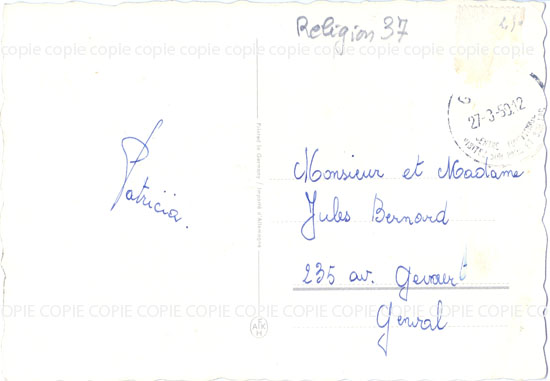 Religion 37
COPIE COPIE COPIE COPIE COPIE COPIE COPIE COPIE COPIE COPIE COPIE COPIE
27-3-59.12
Patricia.
Monsieur et Madame
Jules Bernard
235 av. Gevaert
Genval
Printed in Germany / Imprimé d'Allemagne
COPIE COPIE COPIE COPIE COPIE COPIE COPIE COPIE COPIE COPIE COPIE COPIE